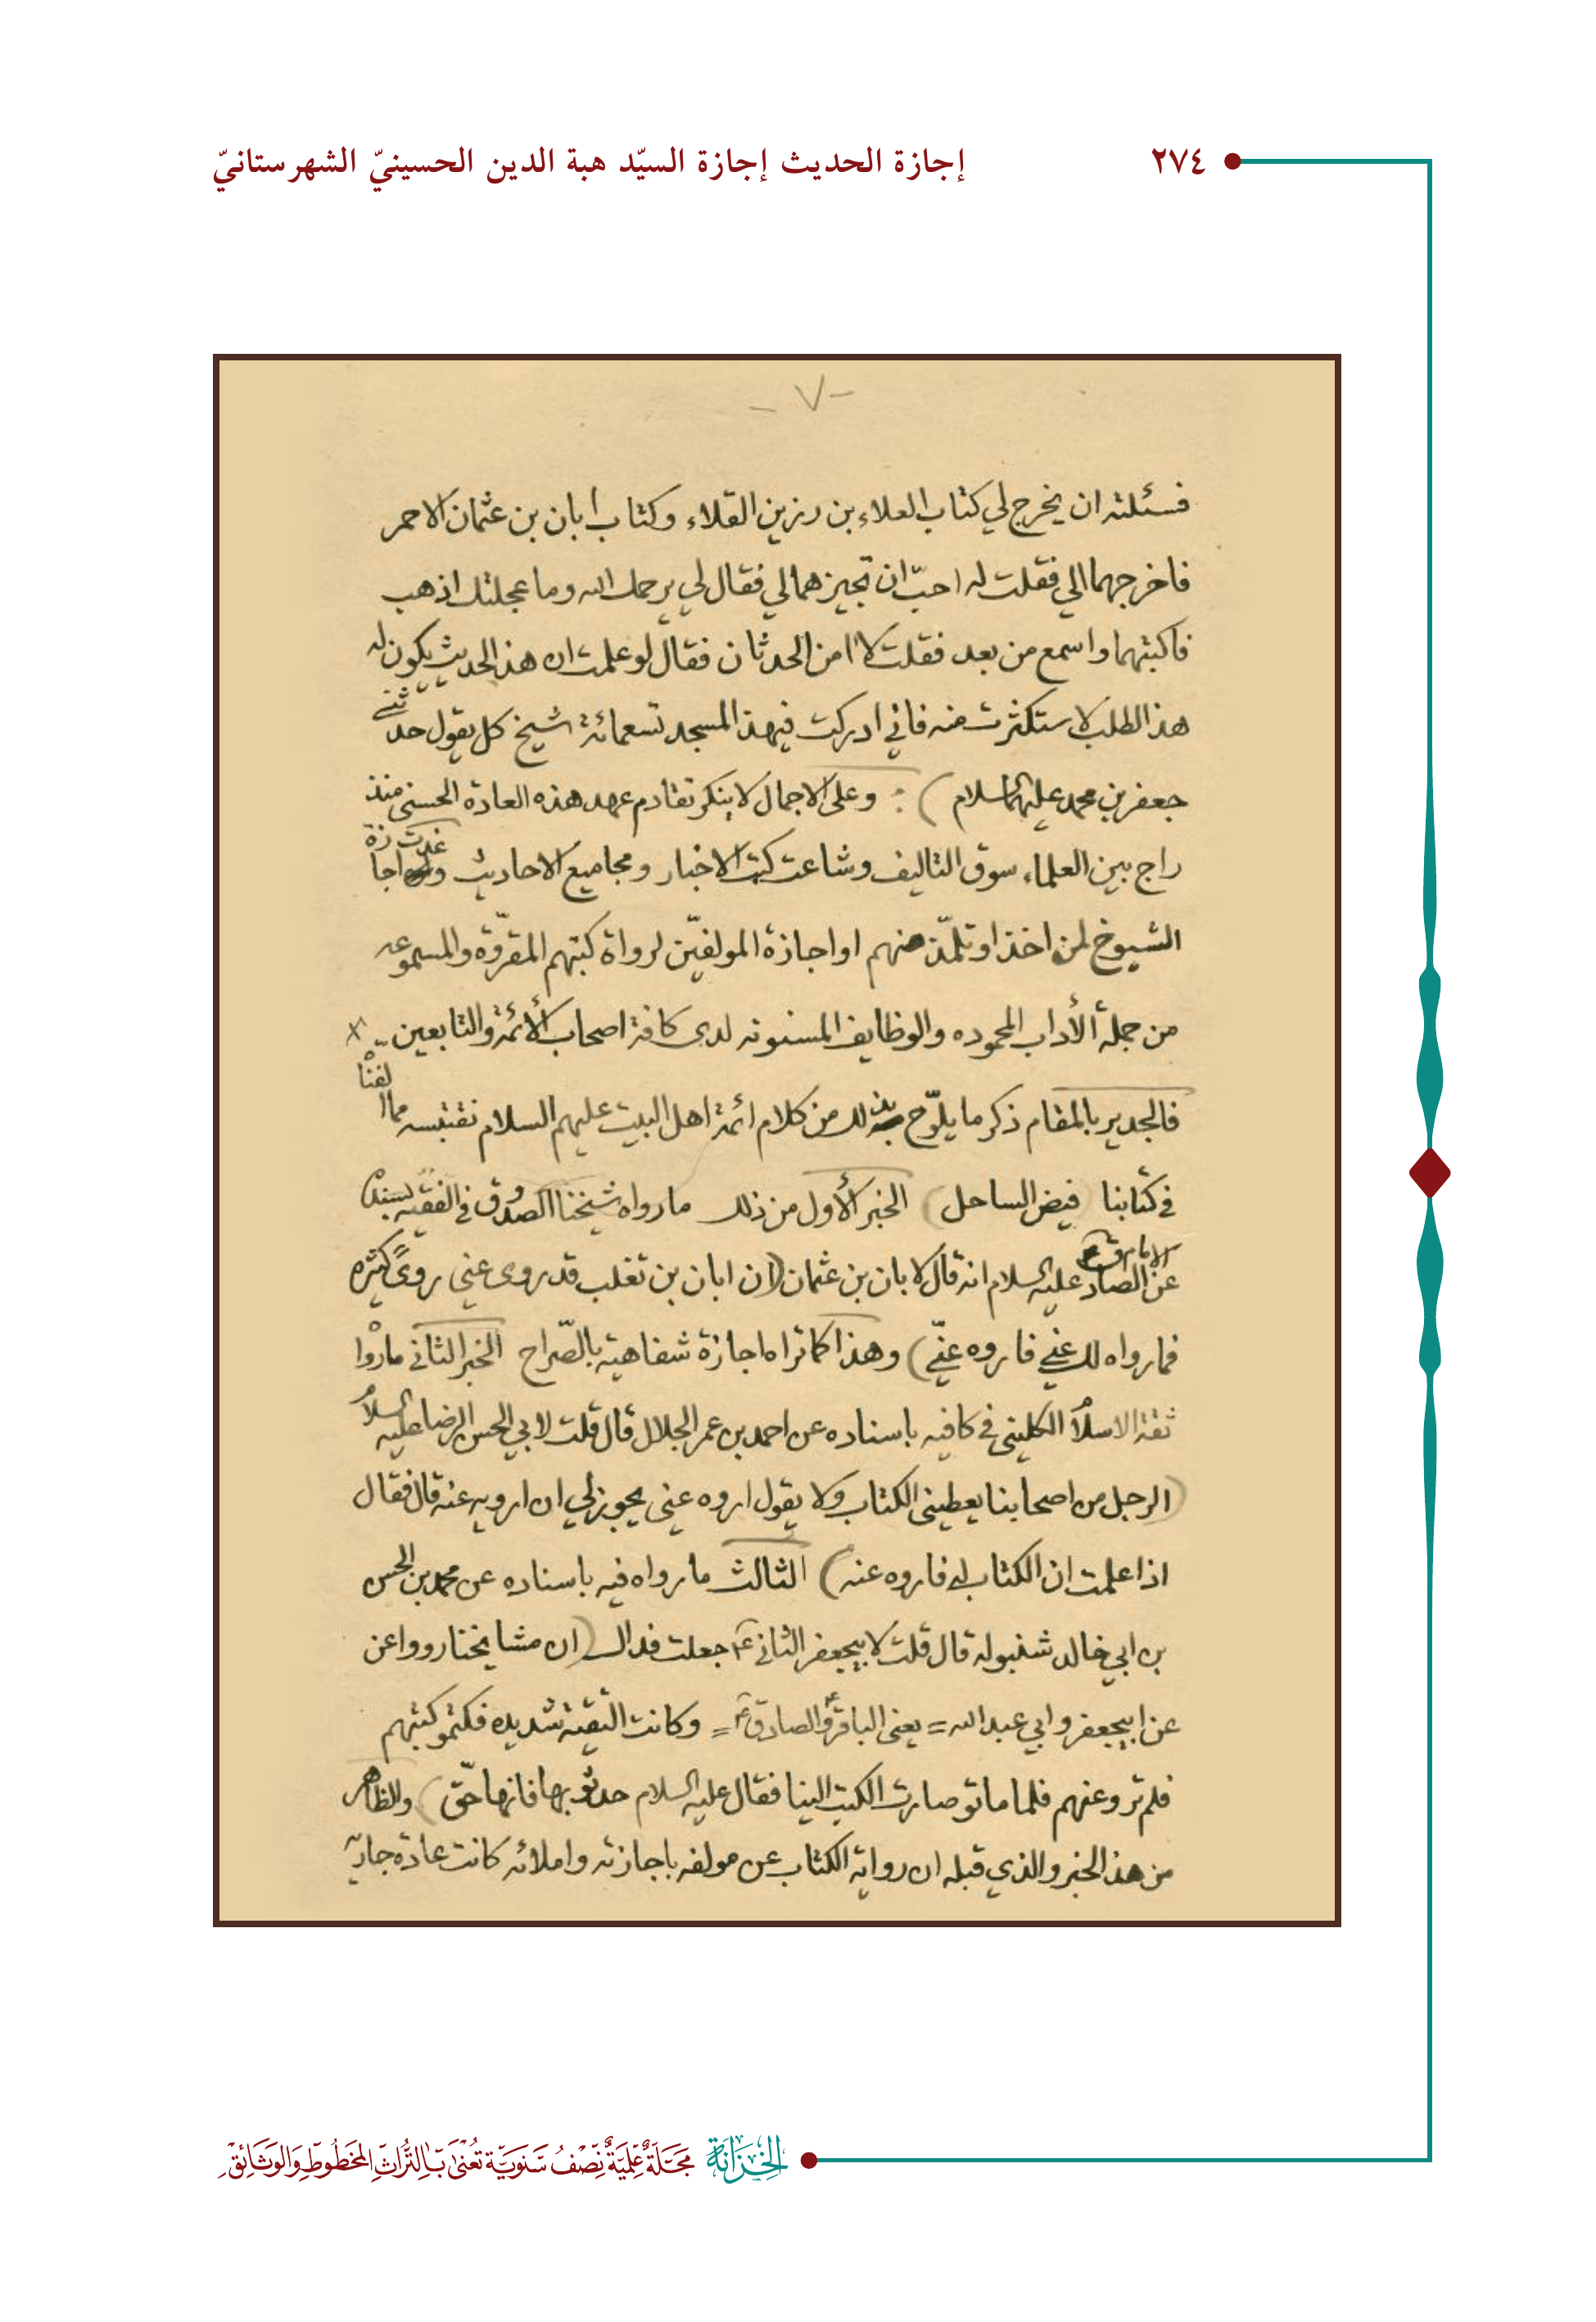 ٢٧٤
إجازة الحديث إجازة السيّد هبة الدين الحسينيّ الشهرستانيّ
- ٧ -
فسئلته ان يخرج لي كتاب العلاء بن رزين القلاء وكتاب أبان بن عثمان الاحمر
فاخرجهما الي فقلت له احبّ ان تجيزهما لي فقال لي يرحمك الله وما عجلتك اذهب
فاكتبهما واسمع من بعد فقلت لا امن الحدثان فقال لو علمت ان هذ الحديث يكون له
هذ الطلب لاستكثرت منه فاني ادركت فيهذ المسجد تسعمائة شيخ كل يقول حدثني
جعفر بن محمد عليهما السلام ) : وعلى الاجمال لا ينكر تقادم عهد هذه العادة الحسنى منذ
راج بين العلماء سوق التاليف وشاعت كتب الاخبار ومجاميع الاحاديث وغدت اجازة
الشيوخ لمن اخذ او تلمّذ منهم او اجازة المولفيّن لرواة كتبهم المقرّوة والمسموعه
من جملة ألأداب المحموده والوظايف المسنونه لدى كافة اصحاب ألأئمة والتابعين
فالجدير بالمقام ذكر ما يلوّح بذلك من كلام ائمة اهل البيت عليهم السلام نقتبسه مما الفناه
في كتابنا (فيض الساحل) الخبر ألأول من ذلك ما رواه شيخنا الصدوق في الفقيه بسنده
عن الامام الصادق عليه السلام انه قال لابان بن عثمان (ان ابان بن تغلب قد روى عني روىً كثيره
فما رواه لك عنّي فاروه عنّي) وهذا كما تراه اجازة شفاهية بالصّراح الخبر الثاني ما رواه
ثقة الاسلام الكليني في كافيه باسناده عن احمد بن عمر الجلال قال قلت لابي الحسن الرضا عليه السلام
(الرجل من اصحابنا يعطيني الكتاب ولا يقول اروه عني يجوز لي ان ارويه عنه قال فقال
اذا علمت ان الكتاب له فاروه عنه) الثالث ما رواه فيه باسناده عن محمد بن الحسن
بن ابي خالد شنبوله قال قلت لابيجعفر الثاني ع جعلت فداك (ان مشايخنا رووا عن
عن ابيجعفر وابي عبد الله = يعني الباقر ع والصادق ع = وكانت التقية شديده فكتمو كتبهم
فلم ترو عنهم فلما ماتو صارت الكتب الينا فقال عليه السلام حدثو بها فانها حّق) والظاهر
من هذ الخبر والذي قبله ان رواية الكتاب عن مولفه باجازته واملائه كانت عادة جاريه
الخزانة
مجلّة علميّة نصف سنويّة تُعنى بالتّراث المخطوط والوثائق